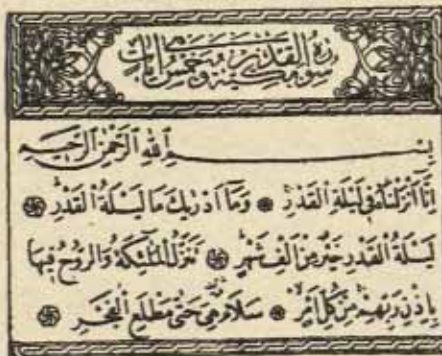 سورة القدر مكية وهى خمس آيات
بِسْمِ اللهِ الرَّحْمٰنِ الرَّحِيمِ
اِنَّا اَنْزَلْنَاهُ فِى لَيْلَةِ الْقَدْرِ وَمَا اَدْرٰيكَ مَا لَيْلَةُ الْقَدْرِ
لَيْلَةُ الْقَدْرِ خَيْرٌ مِنْ اَلْفِ شَهْرٍ تَنَزَّلُ الْمَلٰئِكَةُ وَالرُّوحُ فِيهَا
بِاِذْنِ رَبِّهِمْ مِنْ كُلِّ اَمْرٍ سَلَامٌ هِىَ حَتّٰى مَطْلَعِ الْفَجْرِ